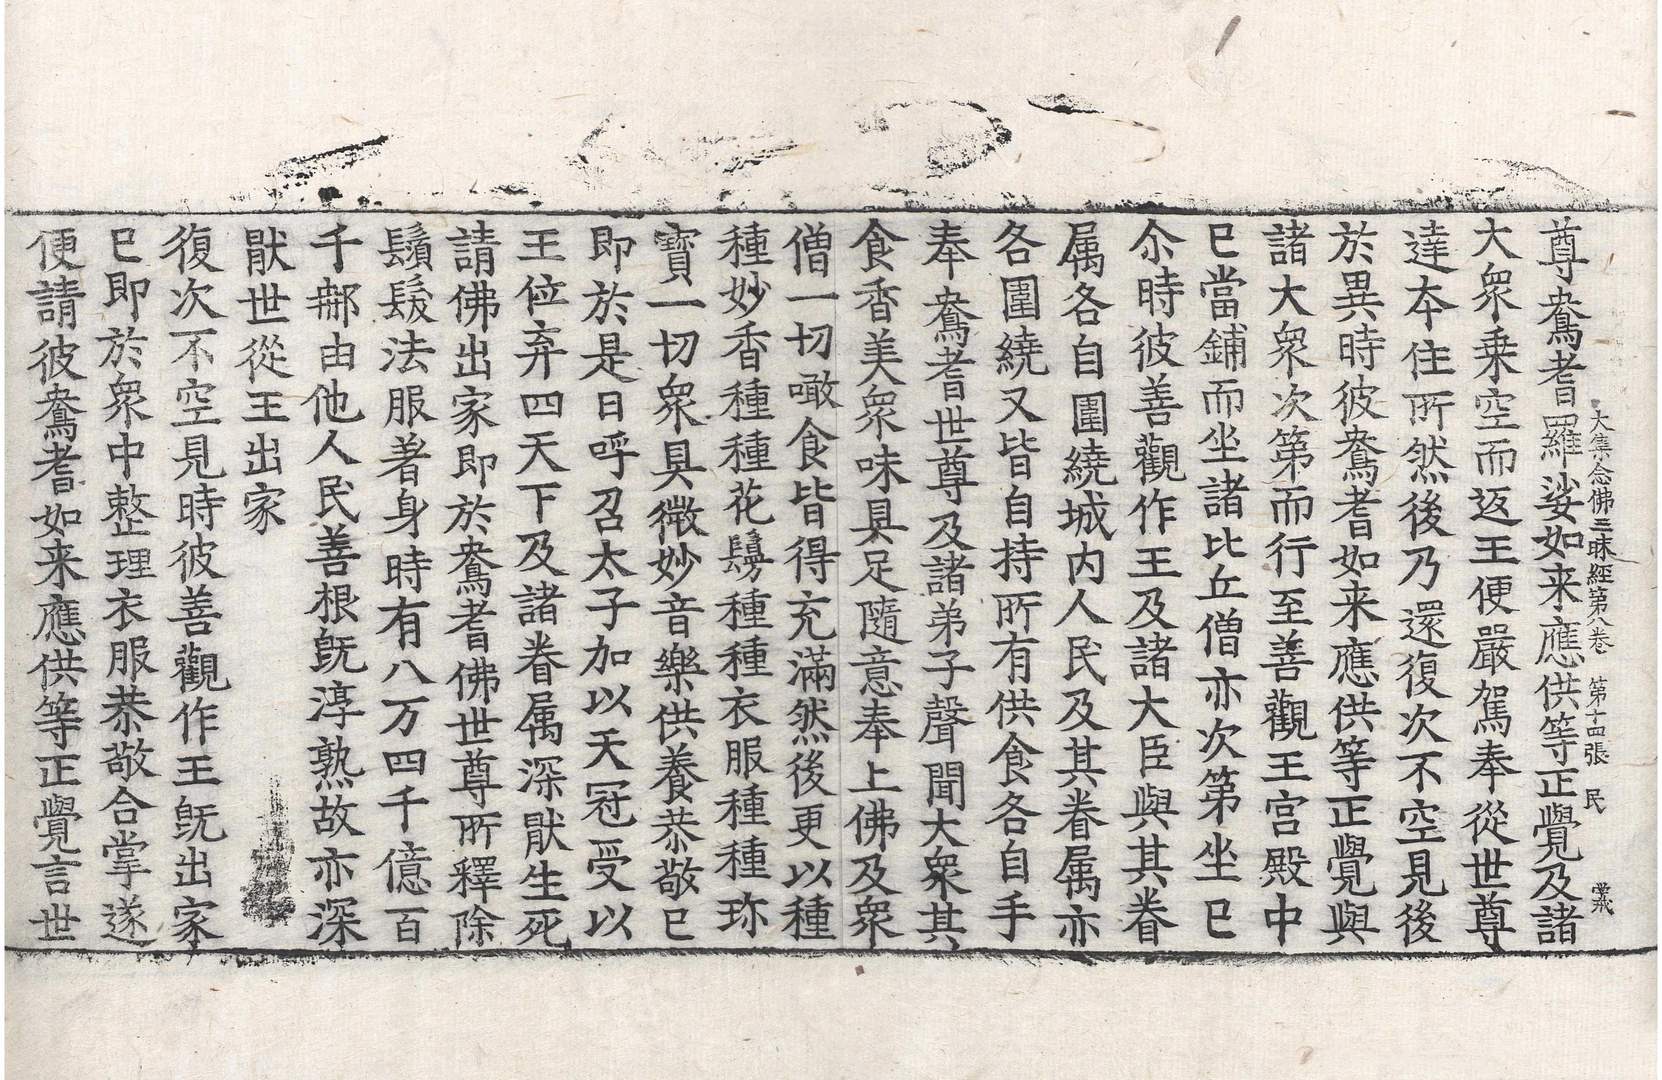 大集念佛三昧經第八卷　第十四張　民
尊鴦耆羅娑如来應供等正覺及諸
大衆乗空而返王便嚴駕奉從世尊
達夲住所然後乃還復次不空見後
於異時彼鴦耆如来應供等正覺與
諸大衆次第而行至善觀王宮殿中
巳當鋪而坐諸比丘僧亦次第坐巳
尒時彼善觀作王及諸大臣與其眷
属各自圍繞城内人民及其眷属亦
各圍繞又皆自持所有供食各自手
奉鴦耆世尊及諸弟子聲聞大衆其
食香美衆味具足隨意奉上佛及衆
僧一切噉食皆得充滿然後更以種
種妙香種種花鬘種種衣服種種珎
寳一切衆具微妙音樂供養恭敬巳
即於是日呼召太子加以天冠受以
王位弃四天下及諸眷属深猒生死
請佛出家即於鴦耆佛世尊所釋除
鬚髮法服著身時有八万四千億百
千郍由他人民善根旣淳熟故亦深
猒世從王出家
復次不空見時彼善觀作王旣出家
巳即於衆中整理衣服恭敬合掌遂
便請彼鴦耆如来應供等正覺言世